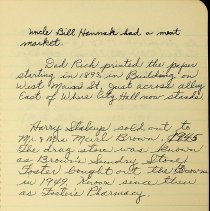 Uncle Bill Hannah had a meat
market.
Dad Rich printed the paper
starting in 1895 in Building on
West Main St, just across alley
East of Where City Hall now stands.
Harry Staleup sold out to
Mr. & Mrs. Merle Brown. 1945
The drug store was known
as Brown's Sundry Store.
Foster bought out the Browns
in 1949. Known since then
as Foster's Pharmacy.